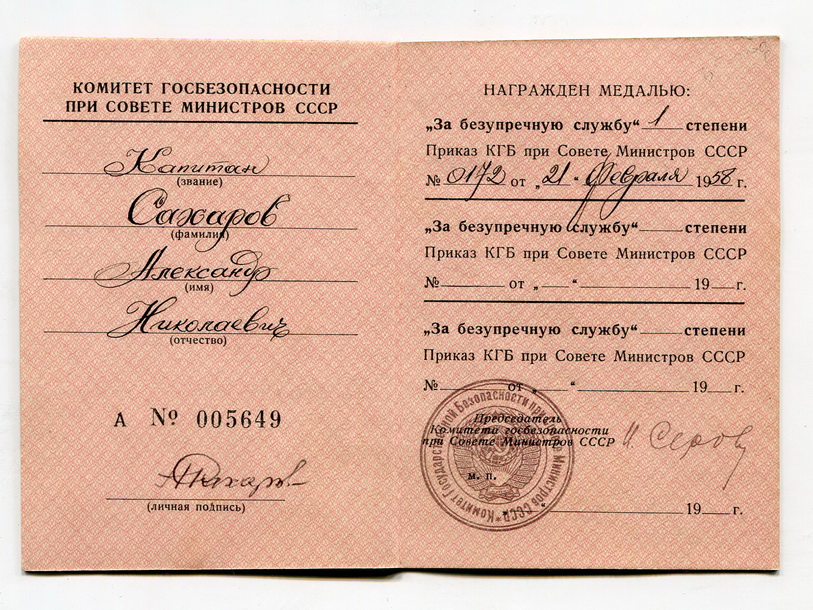 КОМИТЕТ ГОСБЕЗОПАСНОСТИ
ПРИ СОВЕТЕ МИНИСТРОВ СССР
Капитан
(звание)
Сахаров
(фамилия)
Александр
(имя)
Николаевич
(отчество)
А № 005649
(личная подпись)
НАГРАЖДЕН МЕДАЛЬЮ:
„За безупречную службу“ 1 степени
Приказ КГБ при Совете Министров СССР
№ 0172 от „21“ Февраля 1958 г.
„За безупречную службу“ степени
Приказ КГБ при Совете Министров СССР
№ от „ “ 19 г.
„За безупречную службу“ степени
Приказ КГБ при Совете Министров СССР
№ от „ “ 19 г.
Председатель
Комитета госбезопасности
при Совете Министров СССР И. Серов
м. п.
„ “ 19 г.
Комитет Государственной Безопасности при Совете Министров СССР